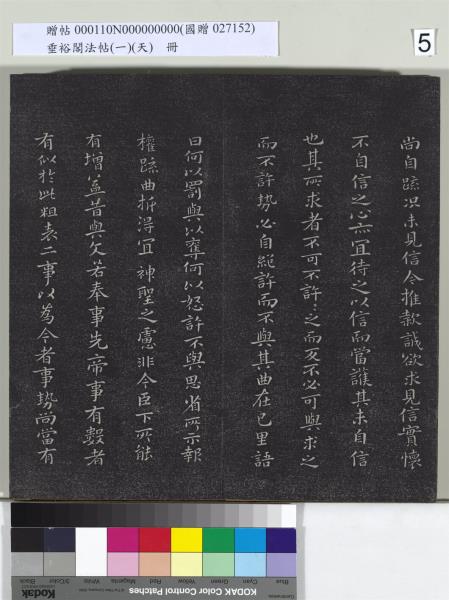 贈帖 000110N000000000(國贈 027152)
垂裕閣法帖(一)(天) 冊
5
尚自疏况未見信今推款誠欲求見信實懷
不自信之心亦宜待之以信而當護其未自信
也其所求者不可不許許之而反不必可與求之
而不許勢必自絕許而不與其曲在己里語
曰何以罰與以奪何以怒許不與思省所示報
權疏曲折得宜神聖之慮非今臣下所能
有增益昔與文若奉事先帝事有數者
有似於此粗表二事以為今者事勢尚當有
KODAK Color Control Patches
Blue Cyan Green Yellow Red Magenta White 3/Color Black